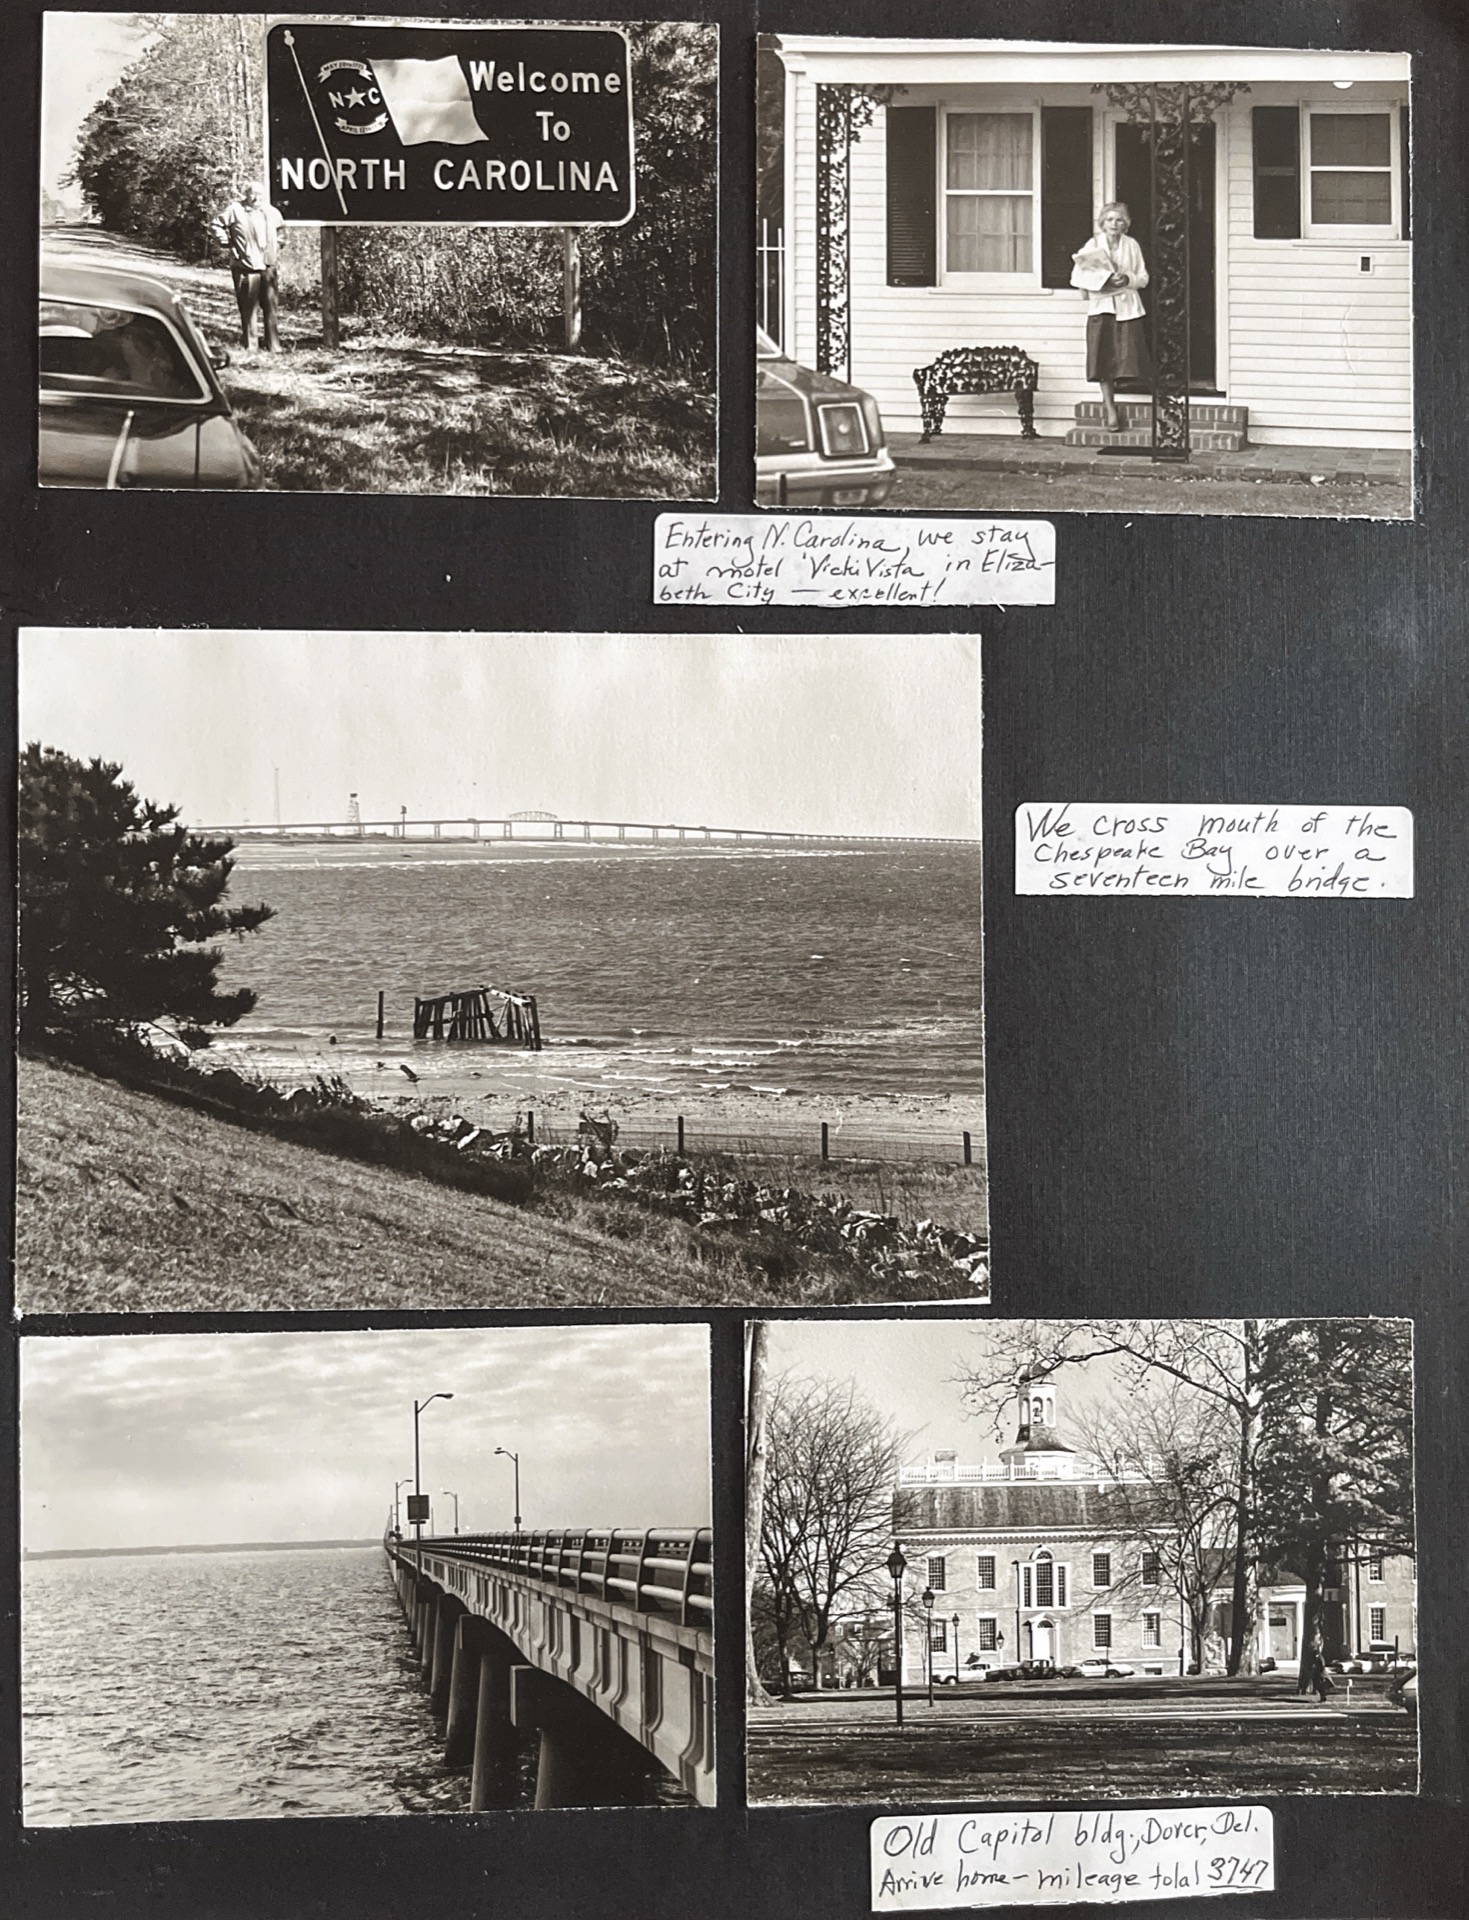 MAY 20TH 1775
N C
APRIL 12TH 1776
Welcome
To
NORTH CAROLINA
Entering N. Carolina, we stay
at motel 'Vicki Vista in Eliza-
beth City — excellent!
We cross mouth of the
Chespeake Bay over a
seventeen mile bridge.
Old Capitol bldg., Dover, Del.
Arrive home – mileage total 3747